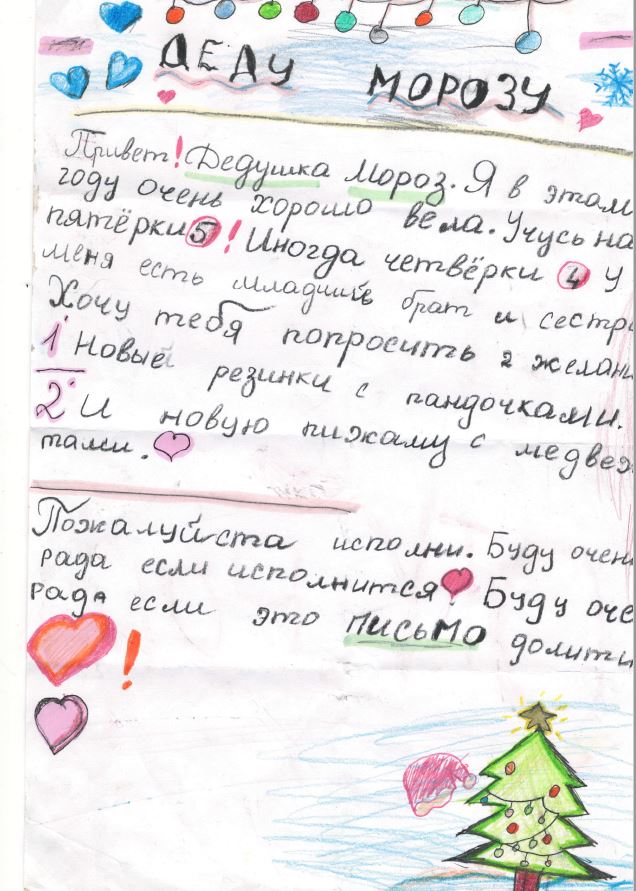 ДЕДУ МОРОЗУ
Привет! Дедушка Мороз. Я в этам
году очень хорошо вела. Учусь на
пятёрки 5! Иногда четвёрки 4 У
меня есть младший брат и сестр
Хочу тебя попросить 2 желан
1 Новые резинки с пандочками.
2 И новую пижаму с медвеж
тами.
Пожалуйста исполни. Буду очен
рада если исполнится Буду оче
рада если это письмо долити
!